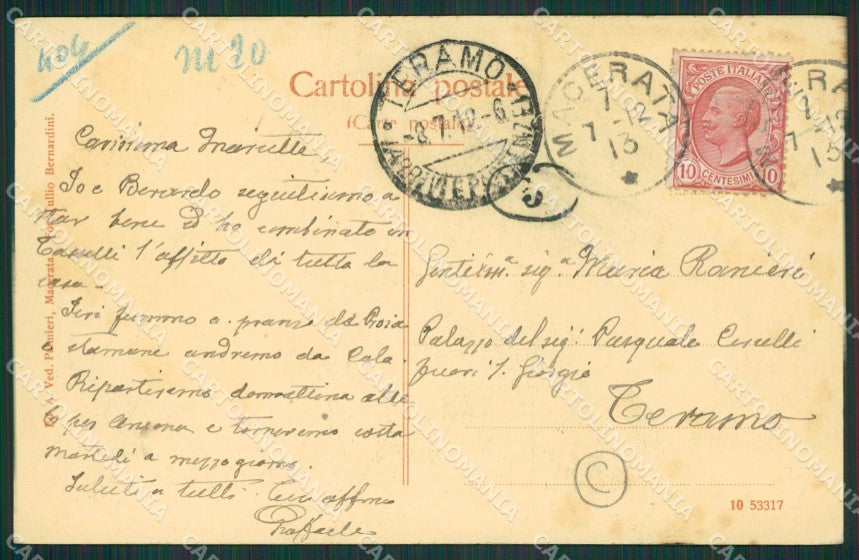 404
M 20
Cartolina postale
(Carte postale)
TERAMO
-8.7.12-6
MACERATA
7-12
7
13
POSTE ITALIANE
10 CENTESIMI 10
Ed. A. Ved. Palmieri, Macerata. Fot. Tullio Bernardini.
Carissima
Io e Berardo seguitiamo a
star bene Ed ho combinato con
l'affitto di tutta la
casa.
Ieri fummo a pranzo da
stamane andremo da Cola.
Ripartiremo domattina alle
6 per Ancona e torneremo costà
martedì a mezzogiorno.
Saluti a tutti. Tuo affmo
Raffaele
Gentilissma sig.a Maria Ranieri
Palazzo del sigr Pasquale Cerulli
fuori S. Giorgio
Teramo
C
10 53317
CARTOLINOMANIA